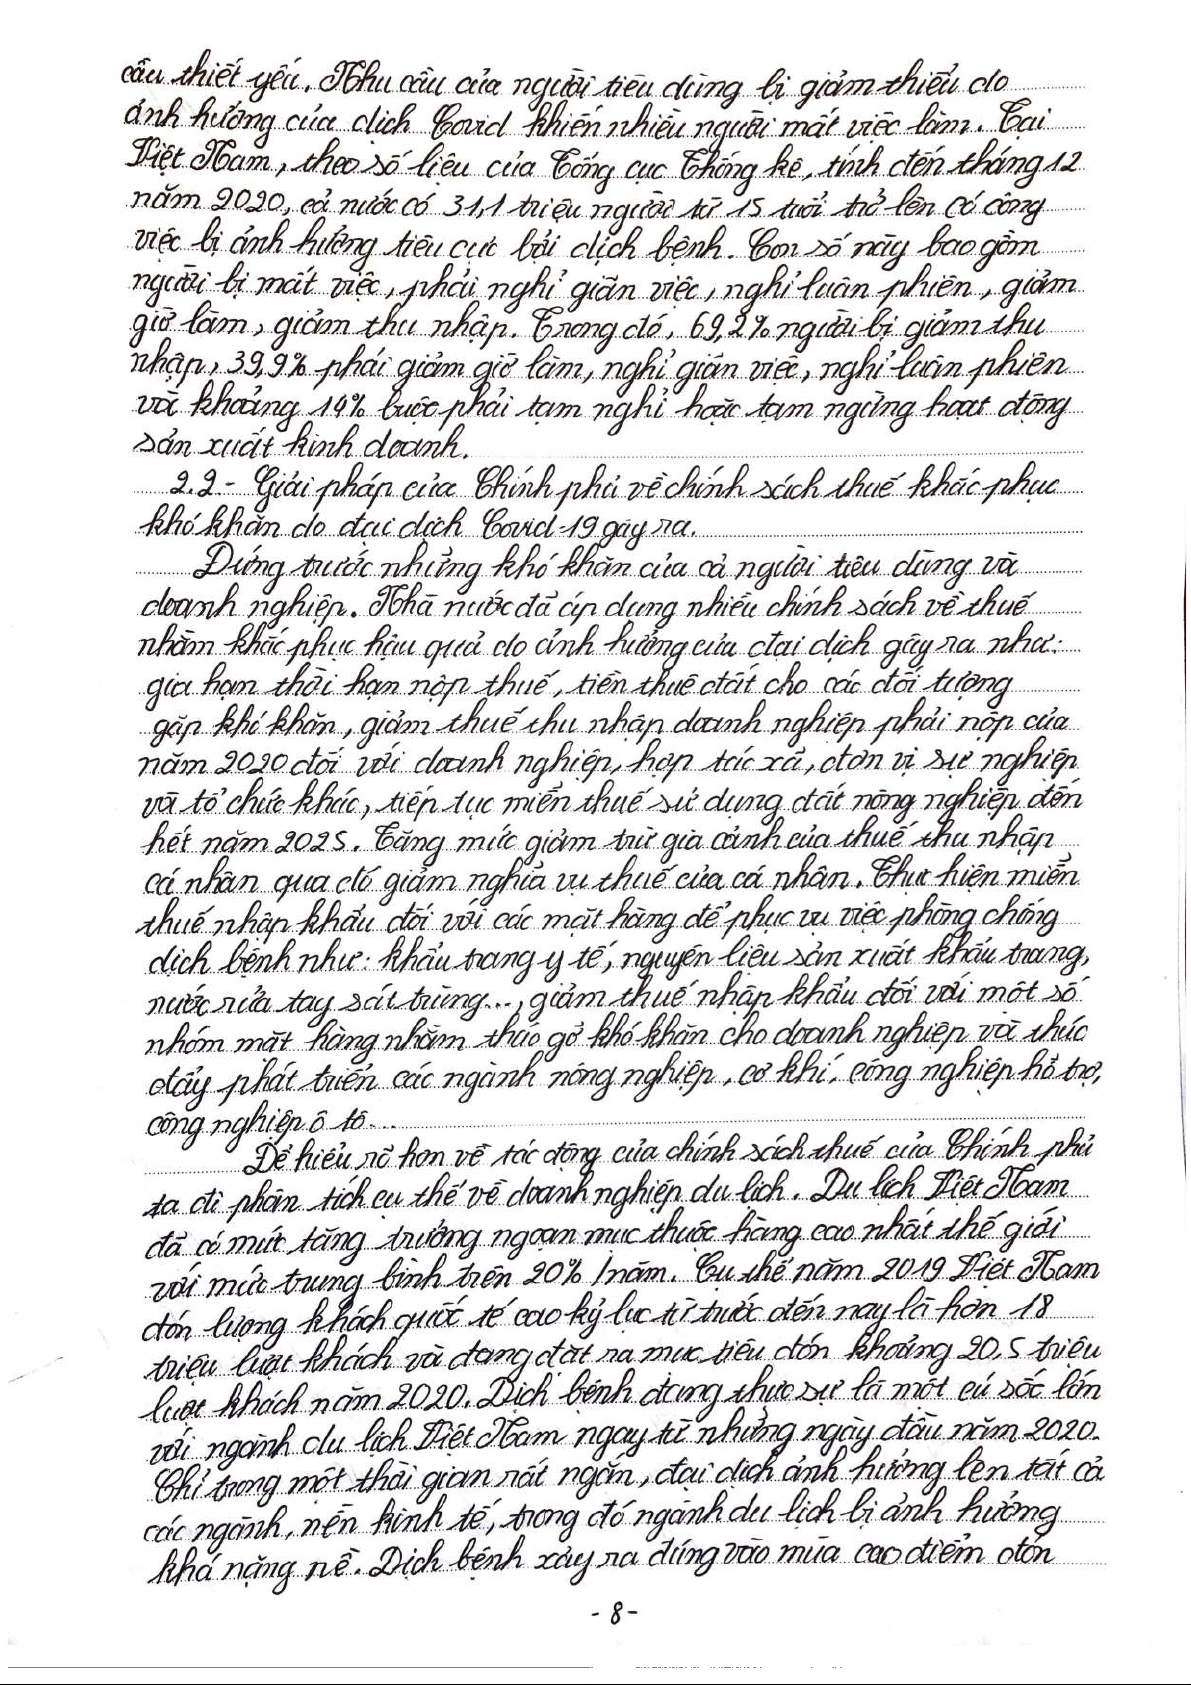 cầu thiết yếu. Nhu cầu của người tiêu dùng bị giảm thiểu do
ảnh hưởng của dịch Covid khiến nhiều người mất việc làm. Tại
Việt Nam, theo số liệu của Tổng cục Thống kê, tính đến tháng 12
năm 2020, cả nước có 31,1 triệu người từ 15 tuổi trở lên có công
việc bị ảnh hưởng tiêu cực bởi dịch bệnh. Con số này bao gồm
người bị mất việc, phải nghỉ giãn việc, nghỉ luân phiên, giảm
giờ làm, giảm thu nhập. Trong đó, 69,2% người bị giảm thu
nhập, 39,9% phải giảm giờ làm, nghỉ giãn việc, nghỉ luân phiên
và khoảng 14% buộc phải tạm nghỉ hoặc tạm ngừng hoạt động
sản xuất kinh doanh.
2.2- Giải pháp của Chính phủ về chính sách thuế khắc phục
khó khăn do đại dịch Covid-19 gây ra.
Đứng trước những khó khăn của cả người tiêu dùng và
doanh nghiệp. Nhà nước đã áp dụng nhiều chính sách về thuế
nhằm khắc phục hậu quả do ảnh hưởng của đại dịch gây ra như:
gia hạn thời hạn nộp thuế, tiền thuê đất cho các đối tượng
gặp khó khăn, giảm thuế thu nhập doanh nghiệp phải nộp của
năm 2020 đối với doanh nghiệp, hợp tác xã, đơn vị sự nghiệp
và tổ chức khác, tiếp tục miễn thuế sử dụng đất nông nghiệp đến
hết năm 2025. Tăng mức giảm trừ gia cảnh của thuế thu nhập
cá nhân qua đó giảm nghĩa vụ thuế của cá nhân. Thực hiện miễn
thuế nhập khẩu đối với các mặt hàng để phục vụ việc phòng chống
dịch bệnh như: khẩu trang y tế, nguyên liệu sản xuất khẩu trang,
nước rửa tay sát trùng..., giảm thuế nhập khẩu đối với một số
nhóm mặt hàng nhằm tháo gỡ khó khăn cho doanh nghiệp và thúc
đẩy phát triển các ngành nông nghiệp, cơ khí, công nghiệp hỗ trợ,
công nghiệp ô tô...
Để hiểu rõ hơn về tác động của chính sách thuế của Chính phủ
ta đi phân tích cụ thể về doanh nghiệp du lịch. Du lịch Việt Nam
đã có mức tăng trưởng ngoạn mục thuộc hàng cao nhất thế giới
với mức trung bình trên 20% /năm. Cụ thể năm 2019 Việt Nam
đón lượng khách quốc tế cao kỷ lục từ trước đến nay là hơn 18
triệu lượt khách và đang đặt ra mục tiêu đón khoảng 20,5 triệu
lượt khách năm 2020. Dịch bệnh đang thực sự là một cú sốc lớn
với ngành du lịch Việt Nam ngay từ những ngày đầu năm 2020.
Chỉ trong một thời gian rất ngắn, đại dịch ảnh hưởng lên tất cả
các ngành, nền kinh tế, trong đó ngành du lịch bị ảnh hưởng
khá nặng nề. Dịch bệnh xảy ra đúng vào mùa cao điểm đón
-8-